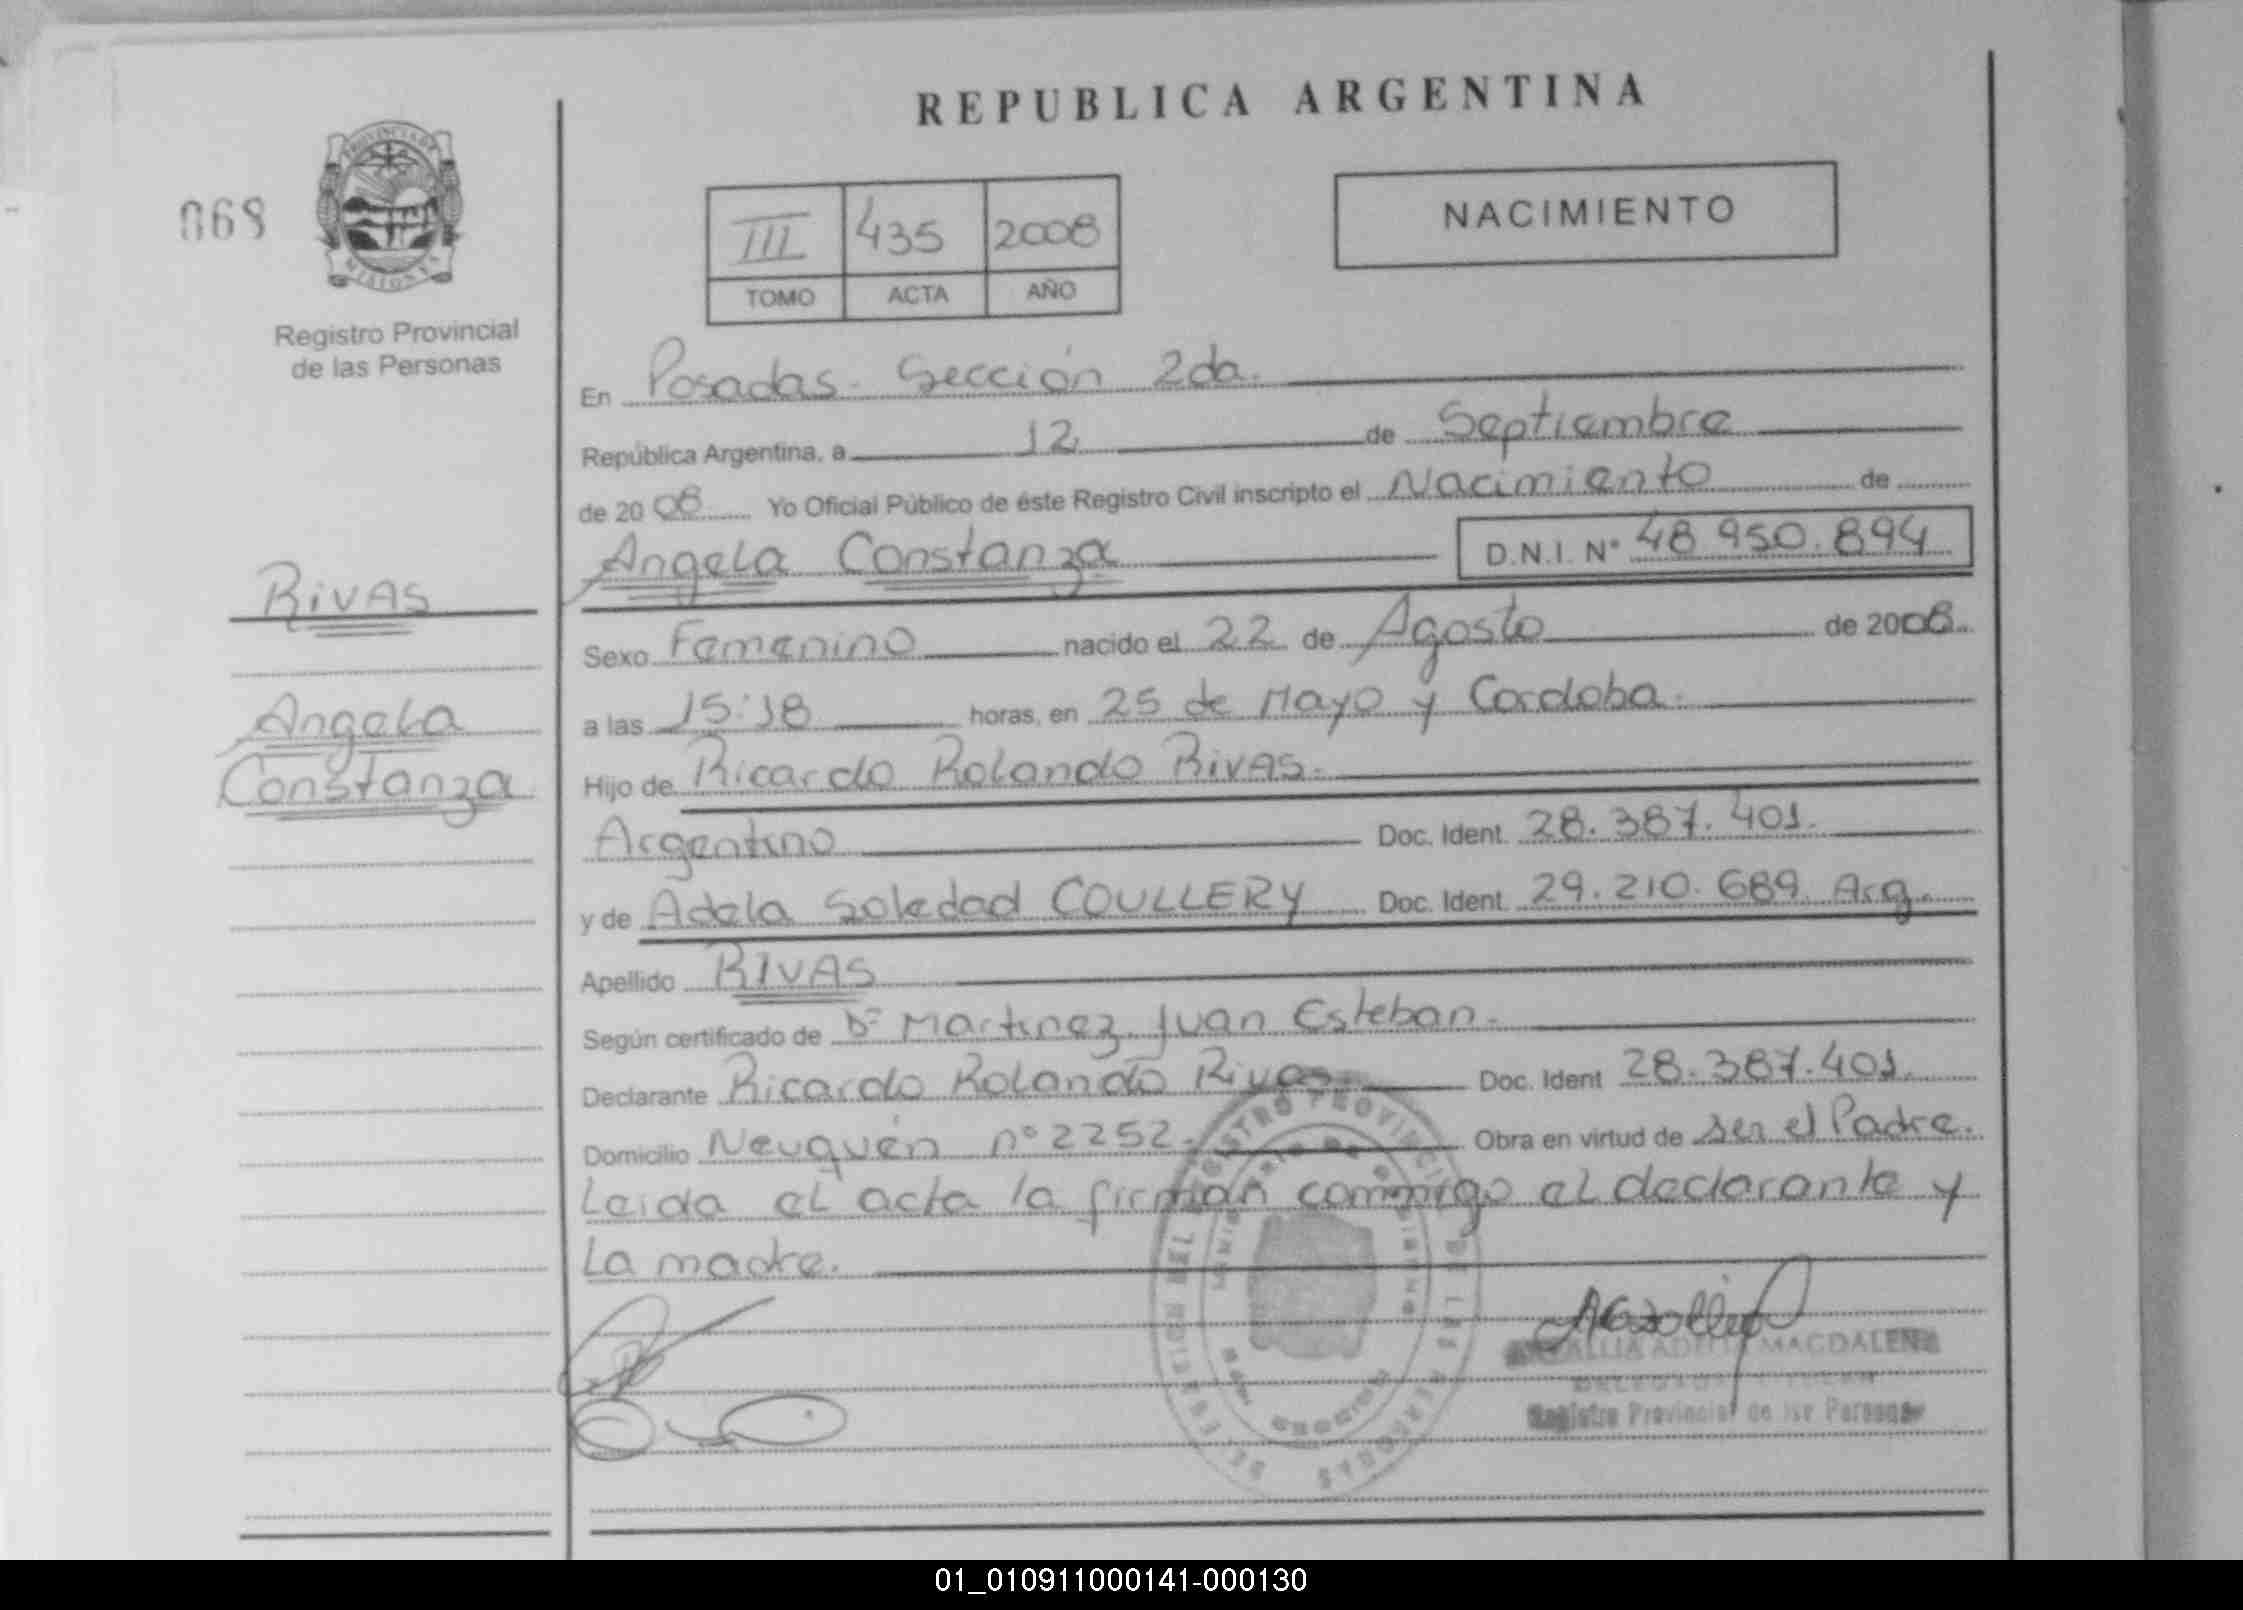 REPUBLICA ARGENTINA
068
PROVINCIA DE
MISIONES
Registro Provincial
de las Personas
III 435 2008
TOMO ACTA AÑO
NACIMIENTO
En Posadas. Sección 2da.
República Argentina, a 12 de Septiembre
de 2008 Yo Oficial Público de éste Registro Civil inscripto el Nacimiento de
Angela Constanza D.N.I. Nº 48 950.894
RIVAS
Angela
Constanza
Sexo Femenino nacido el 22 de Agosto de 2008
a las 15:18 horas, en 25 de Mayo y Cordoba.
Hijo de Ricardo Rolando RIVAS.
Argentino Doc. Ident. 28.387.401.
y de Adela Soledad COULLERY Doc. Ident. 29.210.689. Arg.
Apellido RIVAS
Según certificado de Dr Martinez Juan Esteban.
Declarante Ricardo Rolando Rivas Doc. Ident 28.387.401.
Domicilio Neuquén nº 2252. Obra en virtud de ser el Padre.
Leida el acta la firman conmigo el declarante y
la madre.
MAGDALENA
Registro Provincial de las Personas
01_010911000141-000130